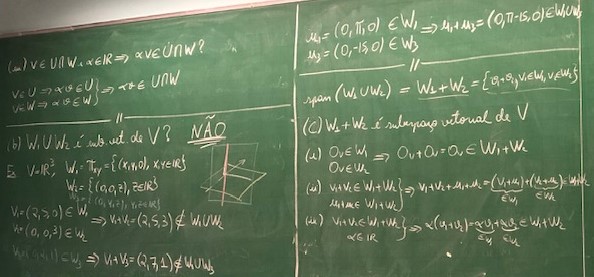 (iii) v ∈ U∩W, α∈IR ⇒ αv ∈ U∩W?
v∈U ⇒ αv∈U
v∈W ⇒ αv∈W } ⇒ αv ∈ U∩W
(b) W₁∪W₂ é sub. vet. de V? NÃO
Ex V=IR³ W₁ = π_xy = {(x,y,0), x,y∈IR}
W₂ = {(0,0,z), z∈IR}
V₁=(2,5,0) ∈ W₁
V₂=(0,0,3) ∈ W₂ ⇒ V₁+V₂=(2,5,3) ∉ W₁∪W₂
⇒ V₁+V₃=(2,7,1) ∉ W₁∪W₃
u₁ = (0,π,0) ∈ W₁ ⇒ u₁+u₃ = (0,π-15,0) ∈ W₁∪W₃
u₃ = (0,-15,0) ∈ W₃
span (W₁∪W₂) = W₁+W₂ = {v₁+v₂, v₁∈W₁, v₂∈W₂}
(c) W₁+W₂ é subespaço vetorial de V
(i) 0v∈W₁
0v∈W₂ ⇒ 0v+0v=0v ∈ W₁+W₂
(ii) v₁+v₂ ∈ W₁+W₂
u₁+u₂ ∈ W₁+W₂ } ⇒ v₁+v₂+u₁+u₂ = (v₁+u₁)+(v₂+u₂) ∈ W₁+W₂
∈W₁ ∈W₂
(iii) v₁+v₂ ∈ W₁+W₂
α∈IR } ⇒ α(v₁+v₂) = αv₁+αv₂ ∈ W₁+W₂
∈W₁ ∈W₂